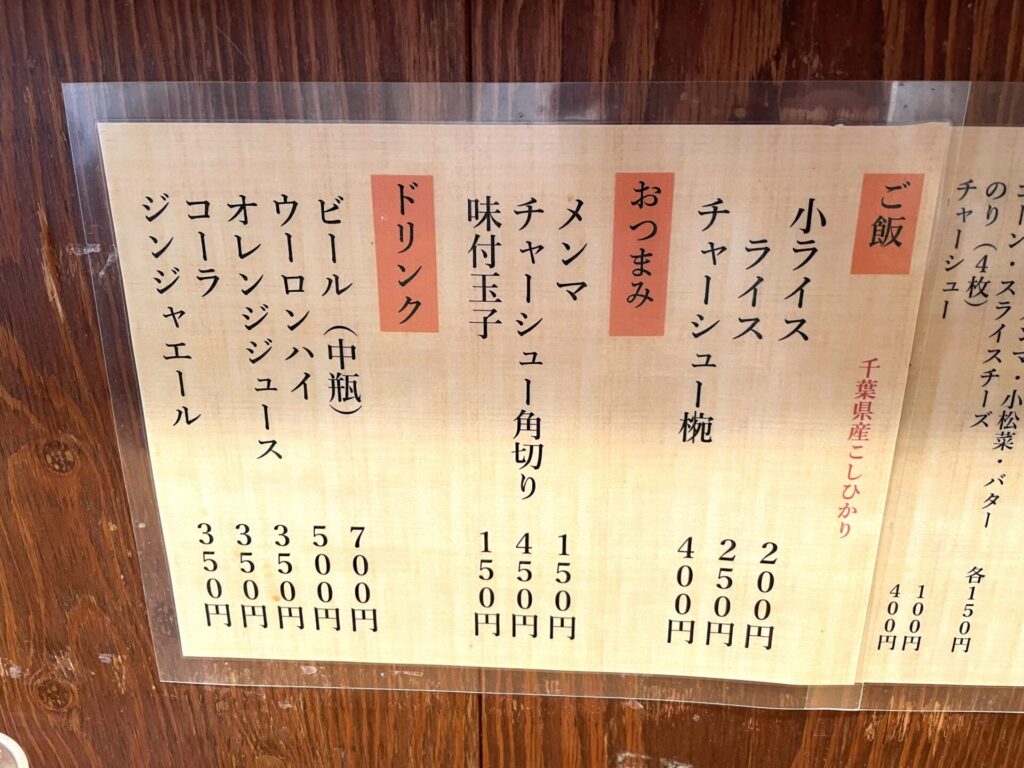 ーン・スライスチーズ
メンマ・小松菜・バター 各150円
のり(4枚) 100円
チャーシュー 400円
ご飯
千葉県産こしひかり
小ライス 200円
ライス 250円
チャーシュー椀 400円
おつまみ
メンマ 150円
チャーシュー角切り 450円
味付玉子 150円
ドリンク
ビール(中瓶) 700円
ウーロンハイ 500円
オレンジジュース 350円
コーラ 350円
ジンジャエール 350円